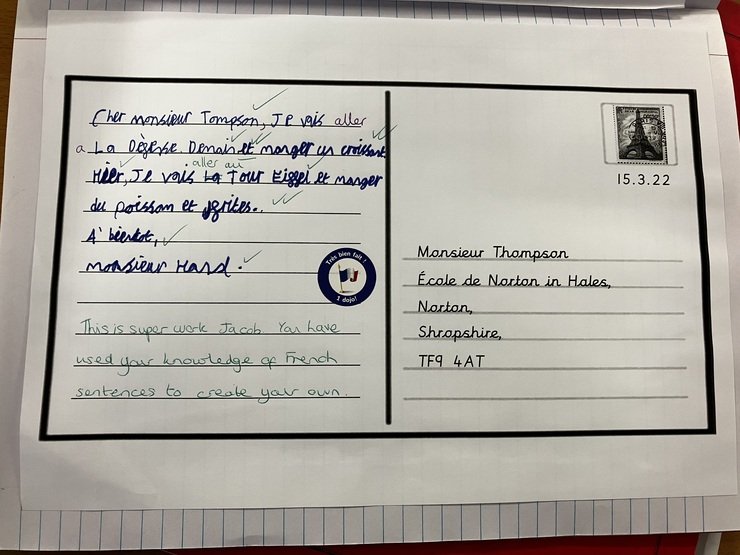 Cher monsieur Tompson, Je vais aller
a La Dégesse Demain et manger un croissant
aller au
Hier, Je vais La Tour Eiffel et manger
du poisson et frites.
A' bientot,
monsieur Hard.
Très bien fait !
1 dojo!
This is super work Jacob. You have
used your knowledge of French
sentences to create your own.
15.3.22
Monsieur Thompson
École de Norton in Hales,
Norton,
Shropshire,
TF9 4AT